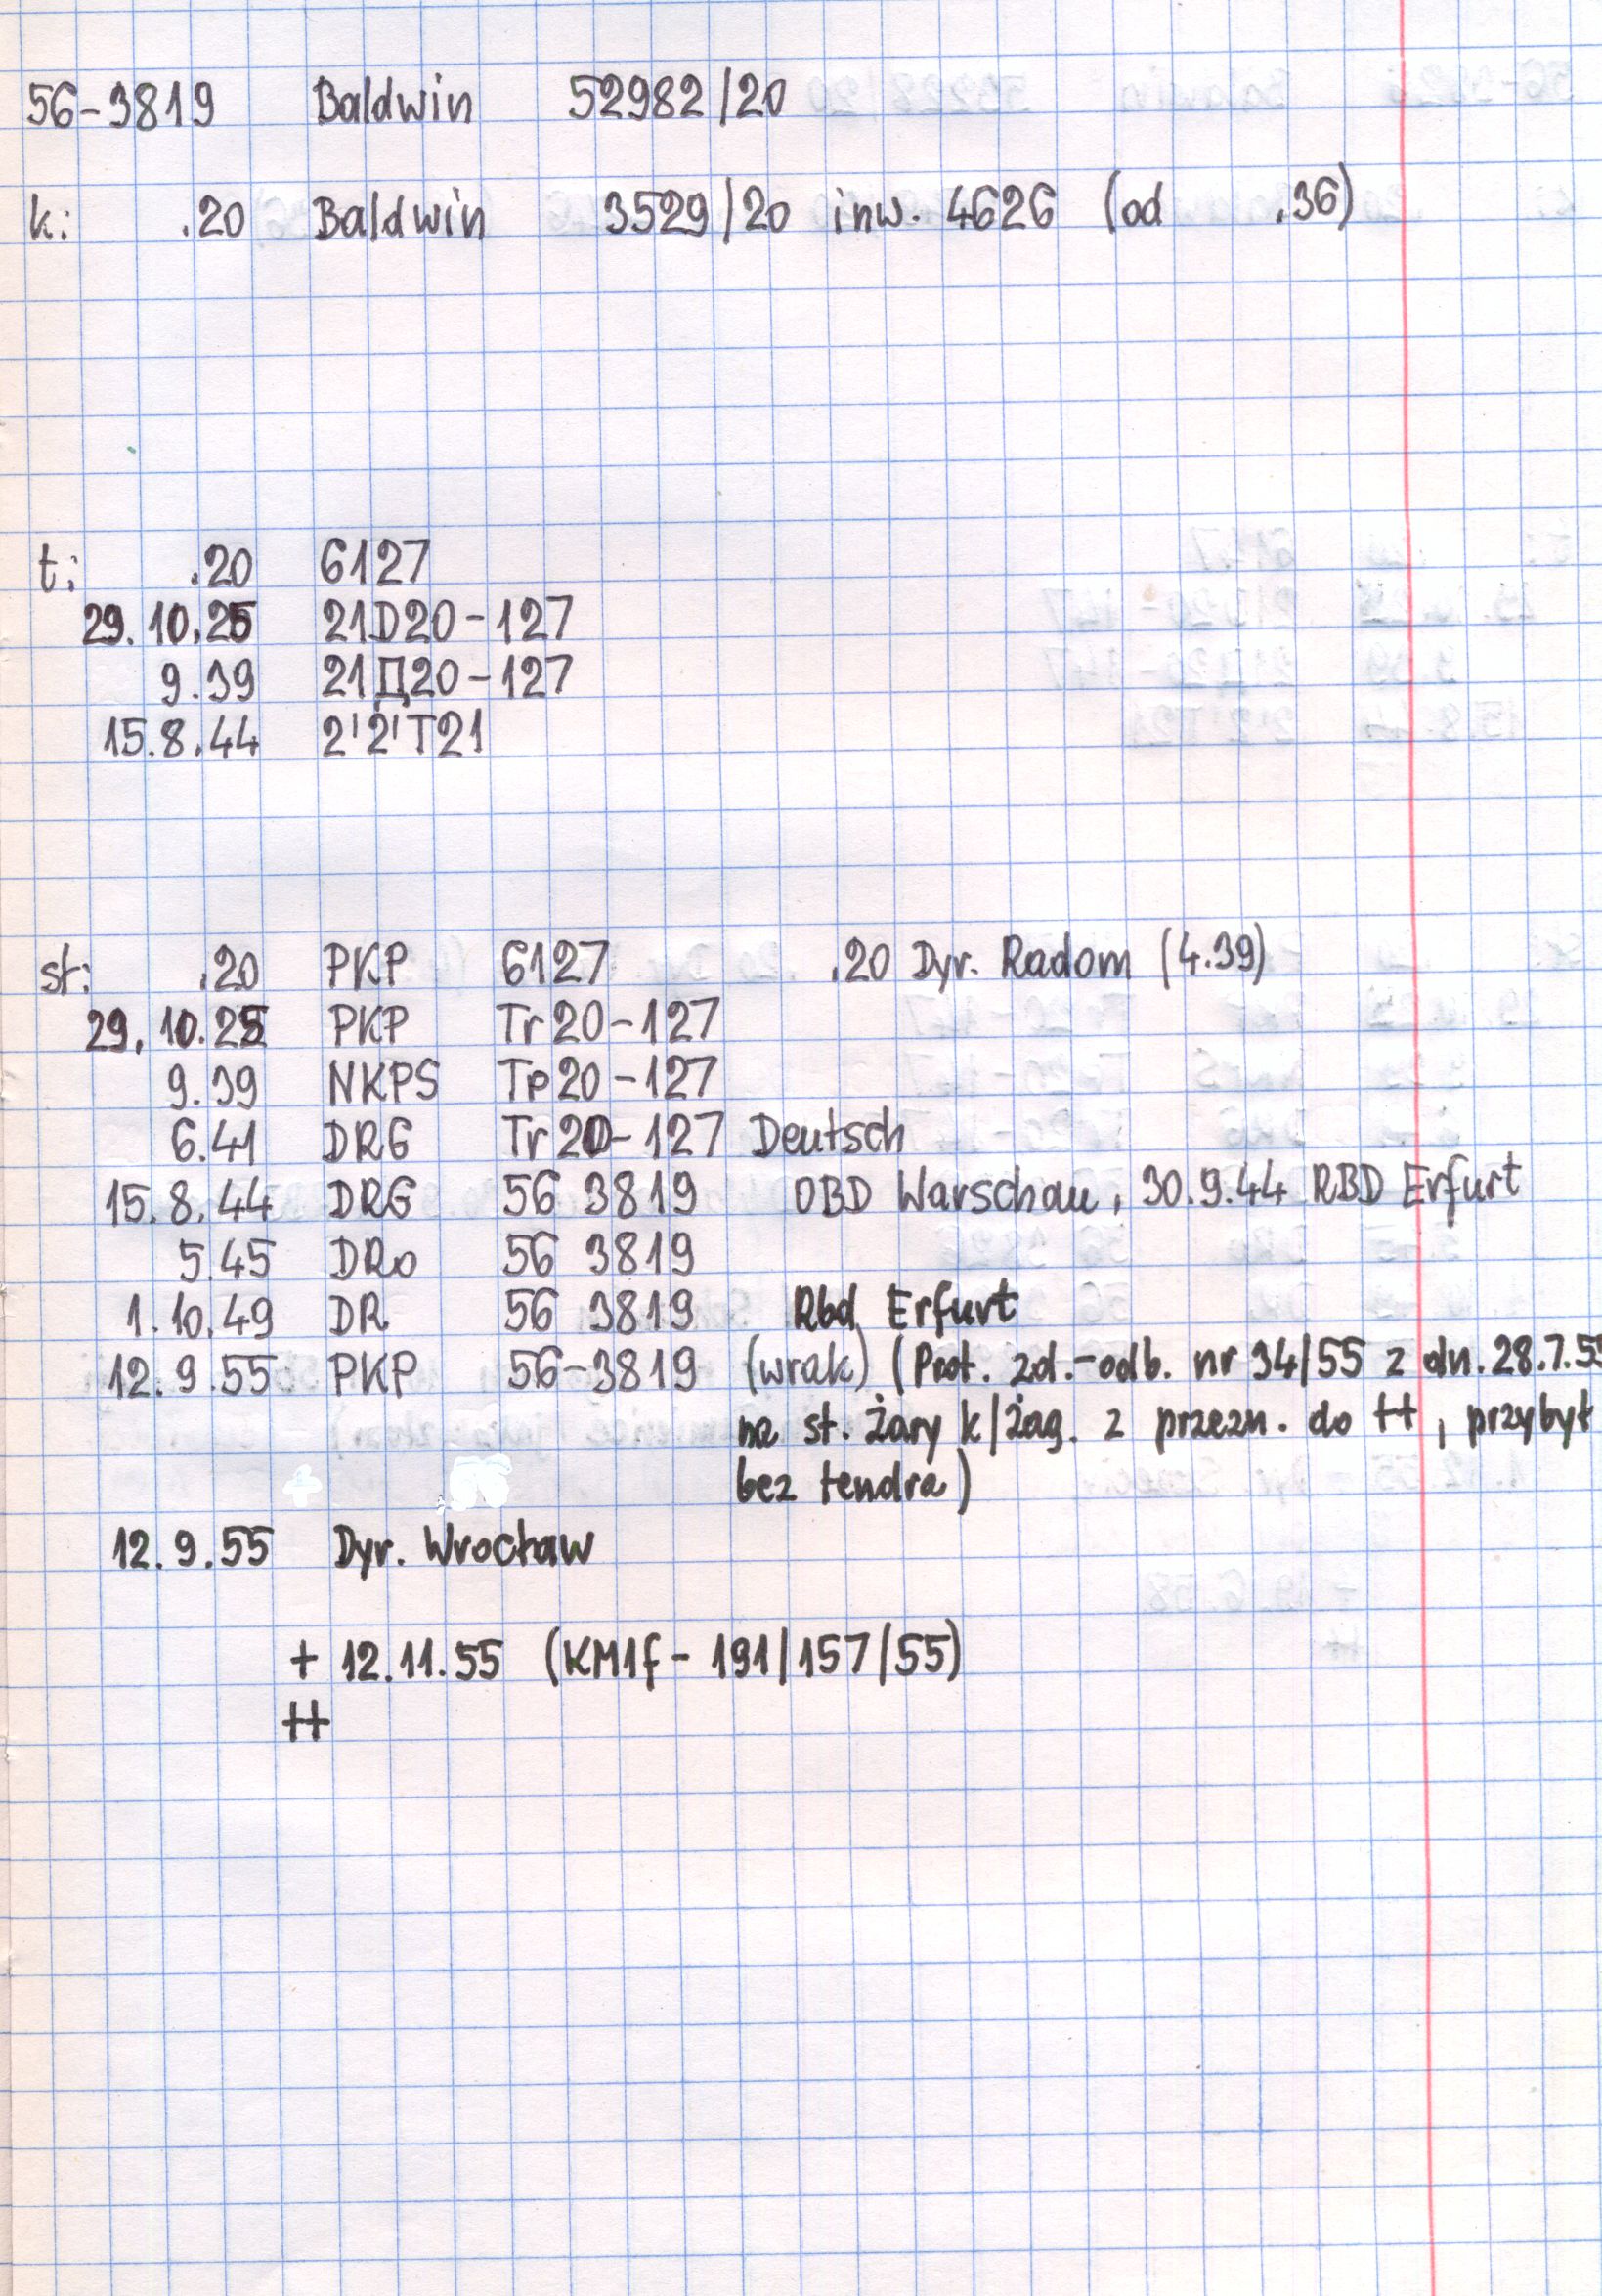 56-3819 Baldwin 52982/20
k: .20 Baldwin 3529/20 inw. 4626 (od .36)
t: .20 6127
29.10.25 21D20-127
9.39 21Д20-127
15.8.44 2'2'T21
st: .20 PKP 6127 .20 Dyr. Radom (4.39)
29.10.25 PKP Tr20-127
9.39 NKPS Тр20-127
6.41 DRG Tr20-127 Deutsch
15.8.44 DRG 56 3819 OBD Warschau, 30.9.44 RBD Erfurt
5.45 DRo 56 3819
1.10.49 DR 56 3819 Rbd Erfurt
12.9.55 PKP 56-3819 (wrak) (Prot. zd.-odb. nr 34/55 z dn. 28.7.55
na st. Żary k/Żag. z przezn. do ++, przybył
bez tendra)
12.9.55 Dyr. Wrocław
+ 12.11.55 (KM1f - 191/157/55)
++